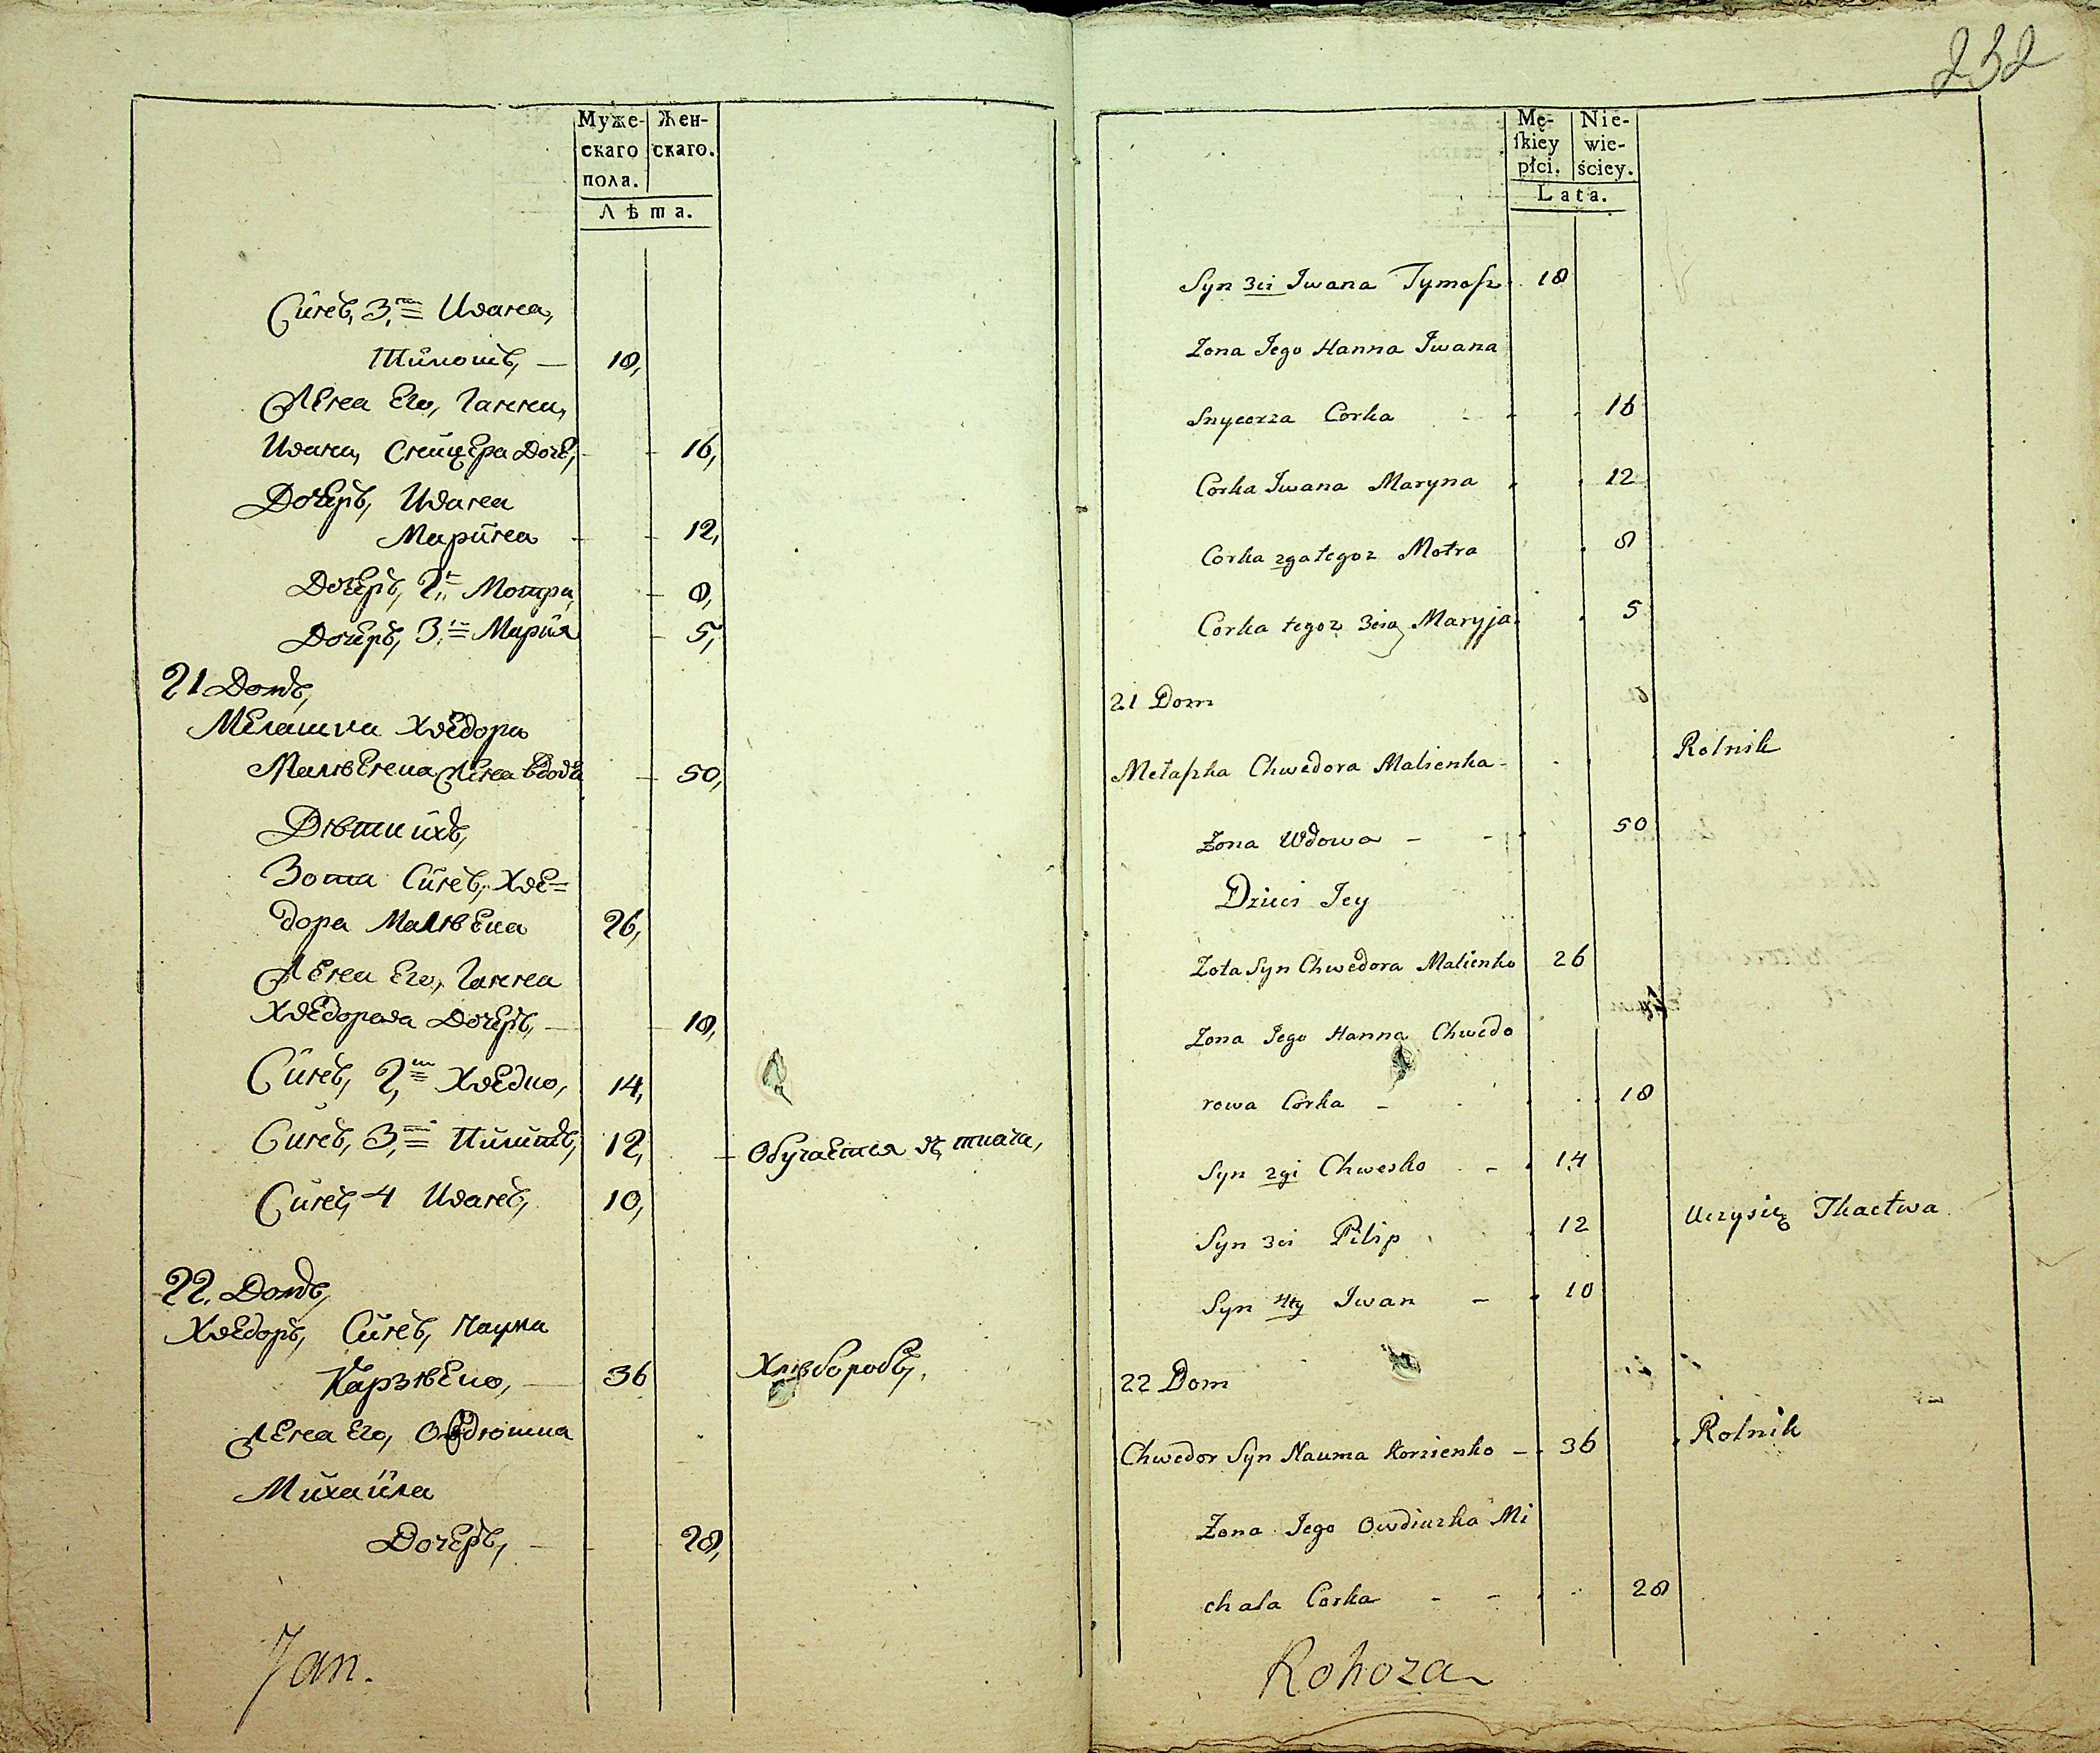 Муже-
скаго
пола.
Жен-
скаго.
Лѣта.
Сынъ, 3,й Ивана,
Тимошъ, — 18,
Жена Его, Ганна,
Ивана, Сницера Дочь, 16,
Дочеръ, Ивана
Марина 12,
Дочеръ, 2,я Мотра, 8,
Дочеръ, 3,я Марія 5,
21 Домъ,
Мелашка Хведора
Малѣенка Жена вдова 50,
Дѣти ихъ,
Зота Сынъ, Хве=
дора Малѣенка 26,
Жена Его, Ганна
Хведорова Дочеръ, — 18,
Сынъ, 2,й Хведко, 14,
Сынъ, 3,й Пилипъ, 12, Обучается въ ткача,
Сынъ, 4 Иванъ, 10,
22. Домъ,
Хведоръ, Сынъ, Наума
Карзѣенко, — 36 Хлѣборобъ,
Жена Его, Овдюшка
Михаила
Дочеръ, — 28,
Jan.
232
Mę-
skiey
płci.
Nie-
wie-
ściey.
Lata.
Syn 3ci Iwana Tymosz 18
Zona Jego Hanna Iwana
Snycerza Corka 16
Corka Iwana Maryna 12
Corka 2ga tegoz Motra 8
Corka tegoz 3cia Maryja 5
21 Dom
Mełaszka Chwedora Malienka Rolnik
Zona Wdowa 50
Dzieci Jey
Zota Syn Chwedora Malienko 26
Zona Jego Hanna Chwedo
rowa Corka 18
Syn 2gi Chwesko 14
Syn 3ci Pilip 12 Uczysię Tkactwa
Syn 4ty Iwan 10
22 Dom
Chwedor Syn Nauma Korzienko 36 Rolnik
Zona Jego Owdiuszka Mi
chała Corka 28
Rohoza